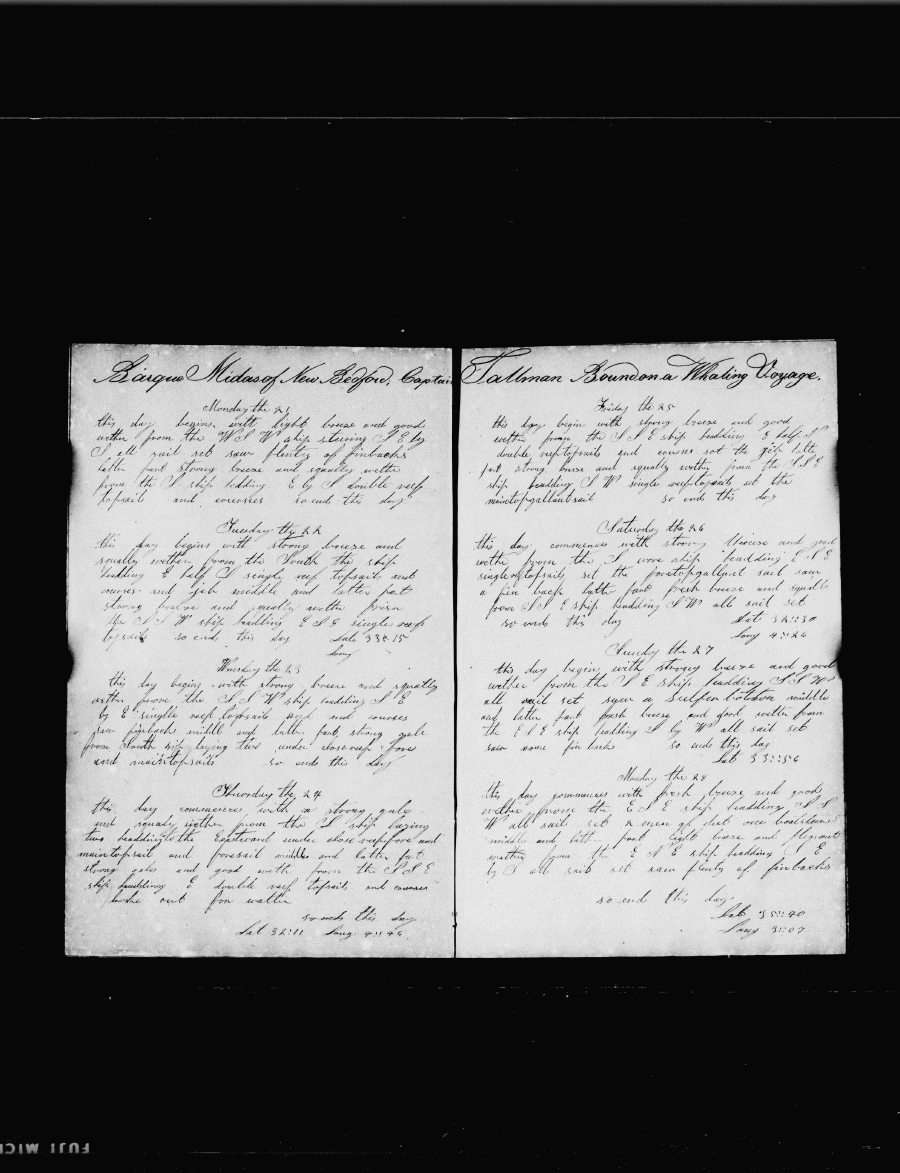 Barque Midas of New Bedford, Captain Tallman Bound on a Whaling Voyage.
Monday the 21
this day begins with light breeze and good
wether from the W S W ship steering S E by
S all sail set saw plenty of finbacks
latter part strong breeze and squally wether
from the S ship hedding E by S double reef
topsails and coursses so ends this day
Tuesday the 22
this day begins with strong breeze and
squally wether from the South the ship
hedding E half S single reef topsails and
courses and jib middle and latter part
strong breeze and squally wether from
the S S W ship hedding E S E single reef
topsails so ends this day Lat 33::15
Long
Wensday the 23
this day begins with strong breeze and squally
wether from the S S W ship hedding S E
by E single reef topsails and courses
saw finbacks middle and latter part strong gale
from South ship laying two under close reep fore
and maintopsails so ends this day
Thursday the 24
this day commences with a strong gale
and squaly wether from the S ship laying
two hedding to the Eastward under close reep fore and
maintopsail and foresail middle and latter part
strong gales and good weth from the S S E
ship heudding E double reep topsails and courses
looke out for watter
so ends this day
Lat 32::11 Long 4::46
Friday the 25
this day begin with strong breeze and good
wether from the S S E ship hedding E half S
double reeptopsails and courses sot the gib latte
part strong breeze and squally wether from the S S E
ship heudding S W single reeptopsails set the
maintopgallantsail so ends this day
Saturday the 26
this day commences with strong breeze and good
wethe from the S wore ship heudding E S E
single topsails set the foretopgallant sail saw
a fin back latter part fresh breeze and squale
from S S E ship hedding S W all sail set
so ends this day Lat 32::30
Long 4::26
Sunday the 27
this day begin with strong breeze and good
wether from the S E ship heudding S S W
all sail set saw a middle
and latter part fresh breeze and good wether from
the E S E ship hedding S by W all sail set
saw some fin backs so ends this day
Lat 33::56
Monday the 28
this day commences with fresh breeze and good
wether from the E S E ship heudding S S
W all sail set
middle and latt part light breeze and
wether from the E N E ship hedding S E
by S all sail set saw plenty of finbacks
so ends this day
Lat 35::40
Long 3::07
FUJI MICR